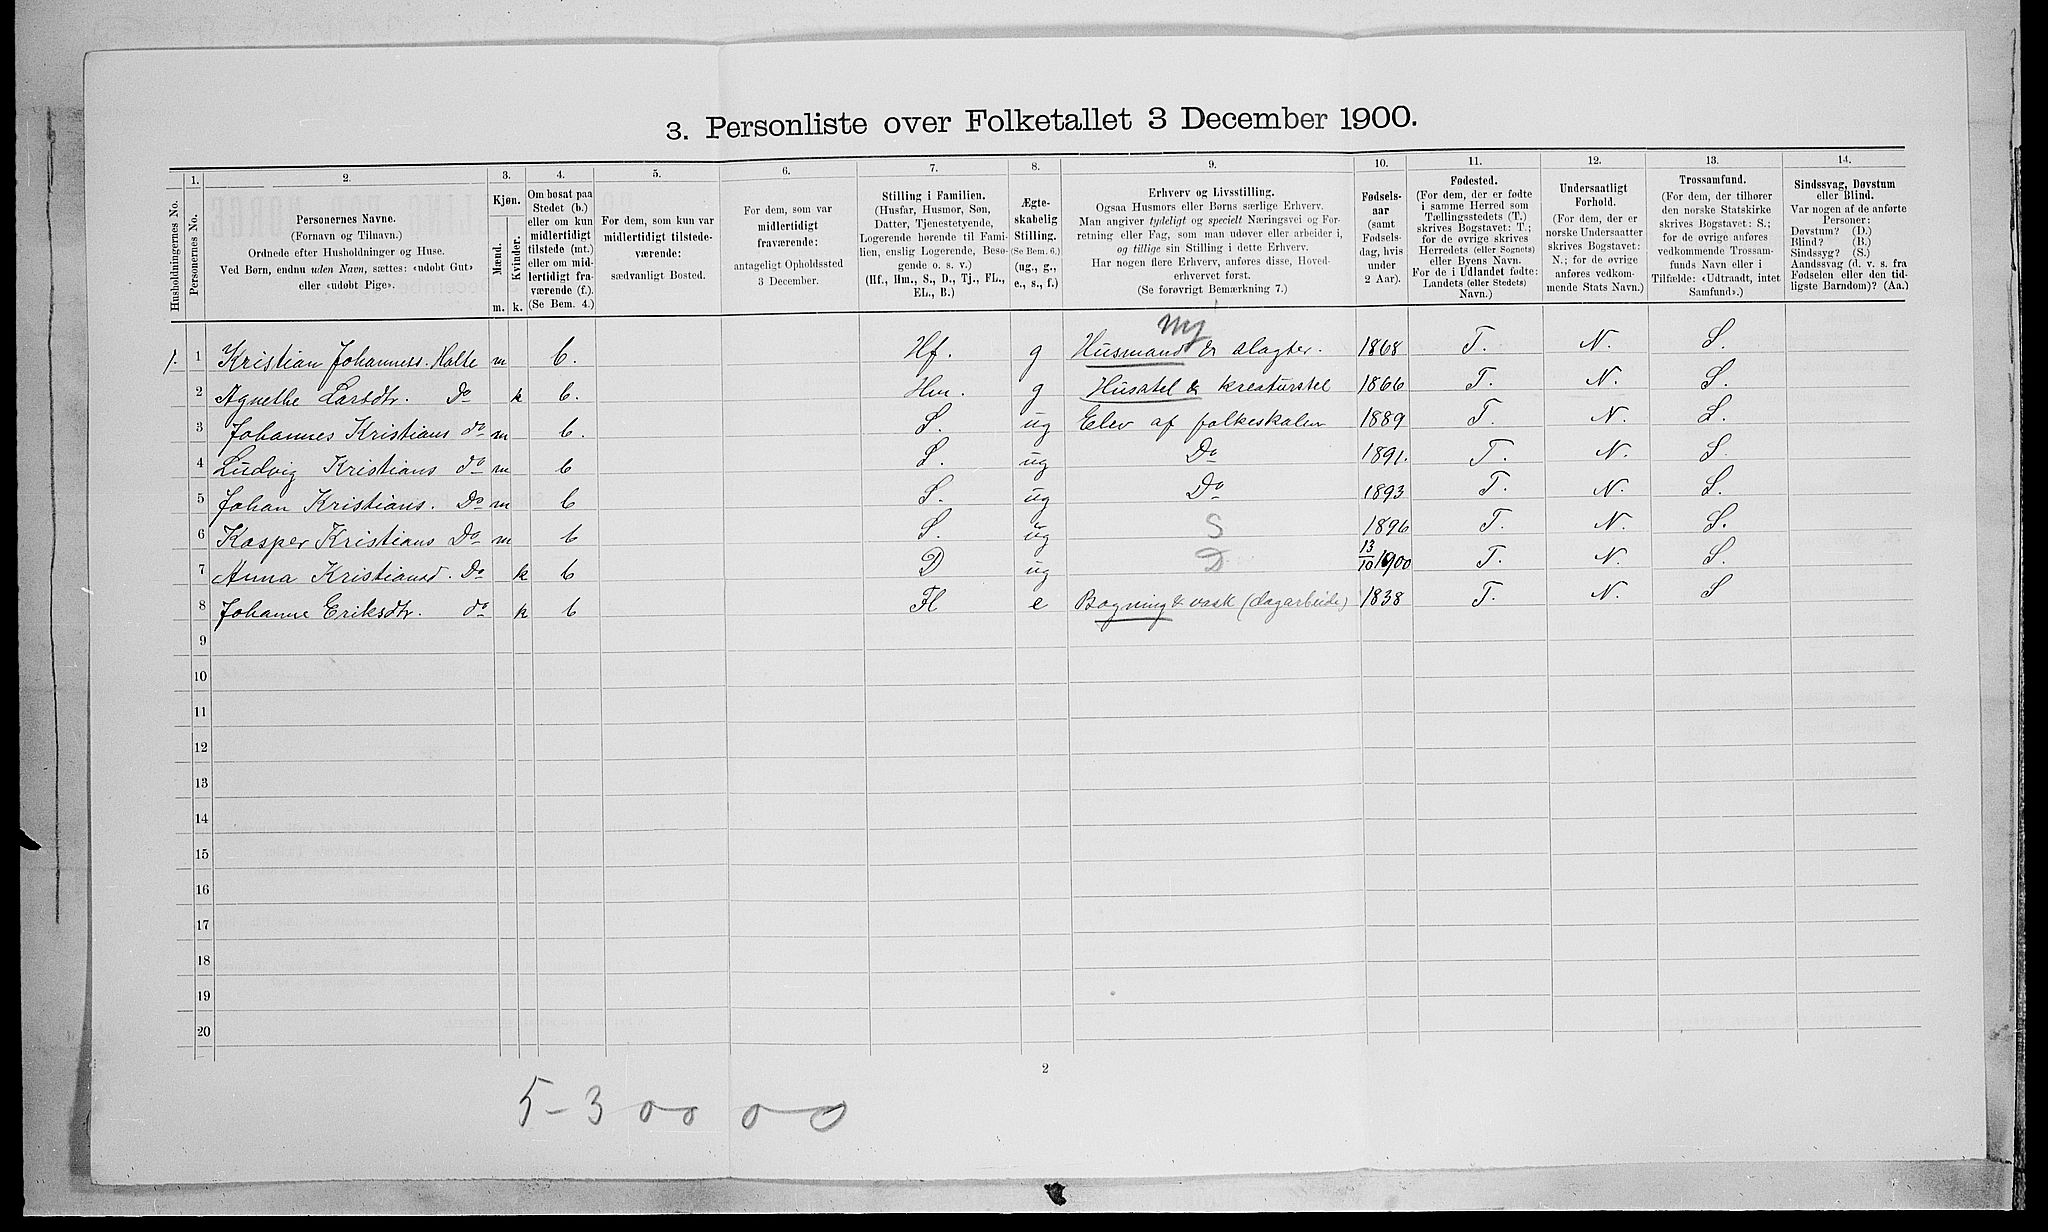 3. Personliste over Folketallet 3 December 1900.
Husholdningernes No.
1. Personernes No.
2. Personernes Navne.
(Fornavn og Tilnavn.)
Ordnede efter Husholdninger og Huse.
Ved Børn, endnu uden Navn, sættes: «udøbt Gut»
eller «udøbt Pige».
3. Kjøn.
Mænd. m.
Kvinder. k.
4. Om bosat paa
Stedet (b.)
eller om kun
midlertidigt
tilstede (mt.)
eller om mid-
lertidigt fra-
værende (f.).
(Se Bem. 4.)
5. For dem, som kun var
midlertidigt tilstede-
værende:
sædvanligt Bosted.
6. For dem, som var
midlertidigt
fraværende:
antageligt Opholdssted
3 December.
7. Stilling i Familien.
(Husfar, Husmor, Søn,
Datter, Tjenestetyende,
Logerende hørende til Fami-
lien, enslig Logerende, Besø-
gende o. s. v.)
(Hf., Hm., S., D., Tj., FL.,
EL., B.)
8. Ægte-
skabelig
Stilling.
(Se Bem. 6.)
(ug., g.,
e., s., f.)
9. Erhverv og Livsstilling.
Ogsaa Husmors eller Børns særlige Erhverv.
Man angiver tydeligt og specielt Næringsvei og For-
retning eller Fag, som man udøver eller arbeider i,
og tillige sin Stilling i dette Erhverv.
Har nogen flere Erhverv, anføres disse, Hoved-
erhvervet først.
(Se forøvrigt Bemærkning 7.)
10. Fødsels-
aar
(samt
Fødsels-
dag, hvis
under
2 Aar).
11. Fødested.
(For dem, der er fødte
i samme Herred som
Tællingsstedets (T.)
skrives Bogstavet: T.;
for de øvrige skrives
Herredets (eller Sognets)
eller Byens Navn.
For de i Udlandet fødte:
Landets (eller Stedets)
Navn.)
12. Undersaatligt
Forhold.
(For dem, der er
norske Undersaatter
skrives Bogstavet:
N.; for de øvrige
anføres vedkom-
mende Stats Navn.)
13. Trossamfund.
(For dem, der tilhører
den norske Statskirke
skrives Bogstavet: S.;
for de øvrige anføres
vedkommende Trossam-
funds Navn eller i
Tilfælde: «Udtraadt, intet
Samfund».)
14. Sindssvag, Døvstum
eller Blind.
Var nogen af de anførte
Personer:
Døvstum? (D.)
Blind? (B.)
Sindssyg? (S.)
Aandssvag (d. v. s. fra
Fødselen eller den tid-
ligste Barndom)? (Aa.)
1. 1 Kristian Johanness. Halte m b. Hf. g Husmand & slagter. 1868 T. N. S.
2 Agnethe Larsdtr. Do k b. Hm. g Husstel & kreaturstel 1866 T. N. S.
3 Johannes Kristians do m b. S. ug Elev af folkeskolen 1889 T. N. S.
4 Ludvig Kristians do m b S. ug Do 1891. T. N. S.
5 Johan Kristians. Do m b S. ug Do 1893 T. N. S.
6 Kasper Kristians Do m b S. ug S 1896 T. N. S.
7 Anna Kristiansd. Do k b D ug D 13/10 1900 T. N. S.
8 Johanne Eriksdtr. do k b Fl e Bagning & vask (dagarbeide) 1838 T. N. S
9
10
11
12
13
14
15
16
17
18
19
20
2
5-3 00 00